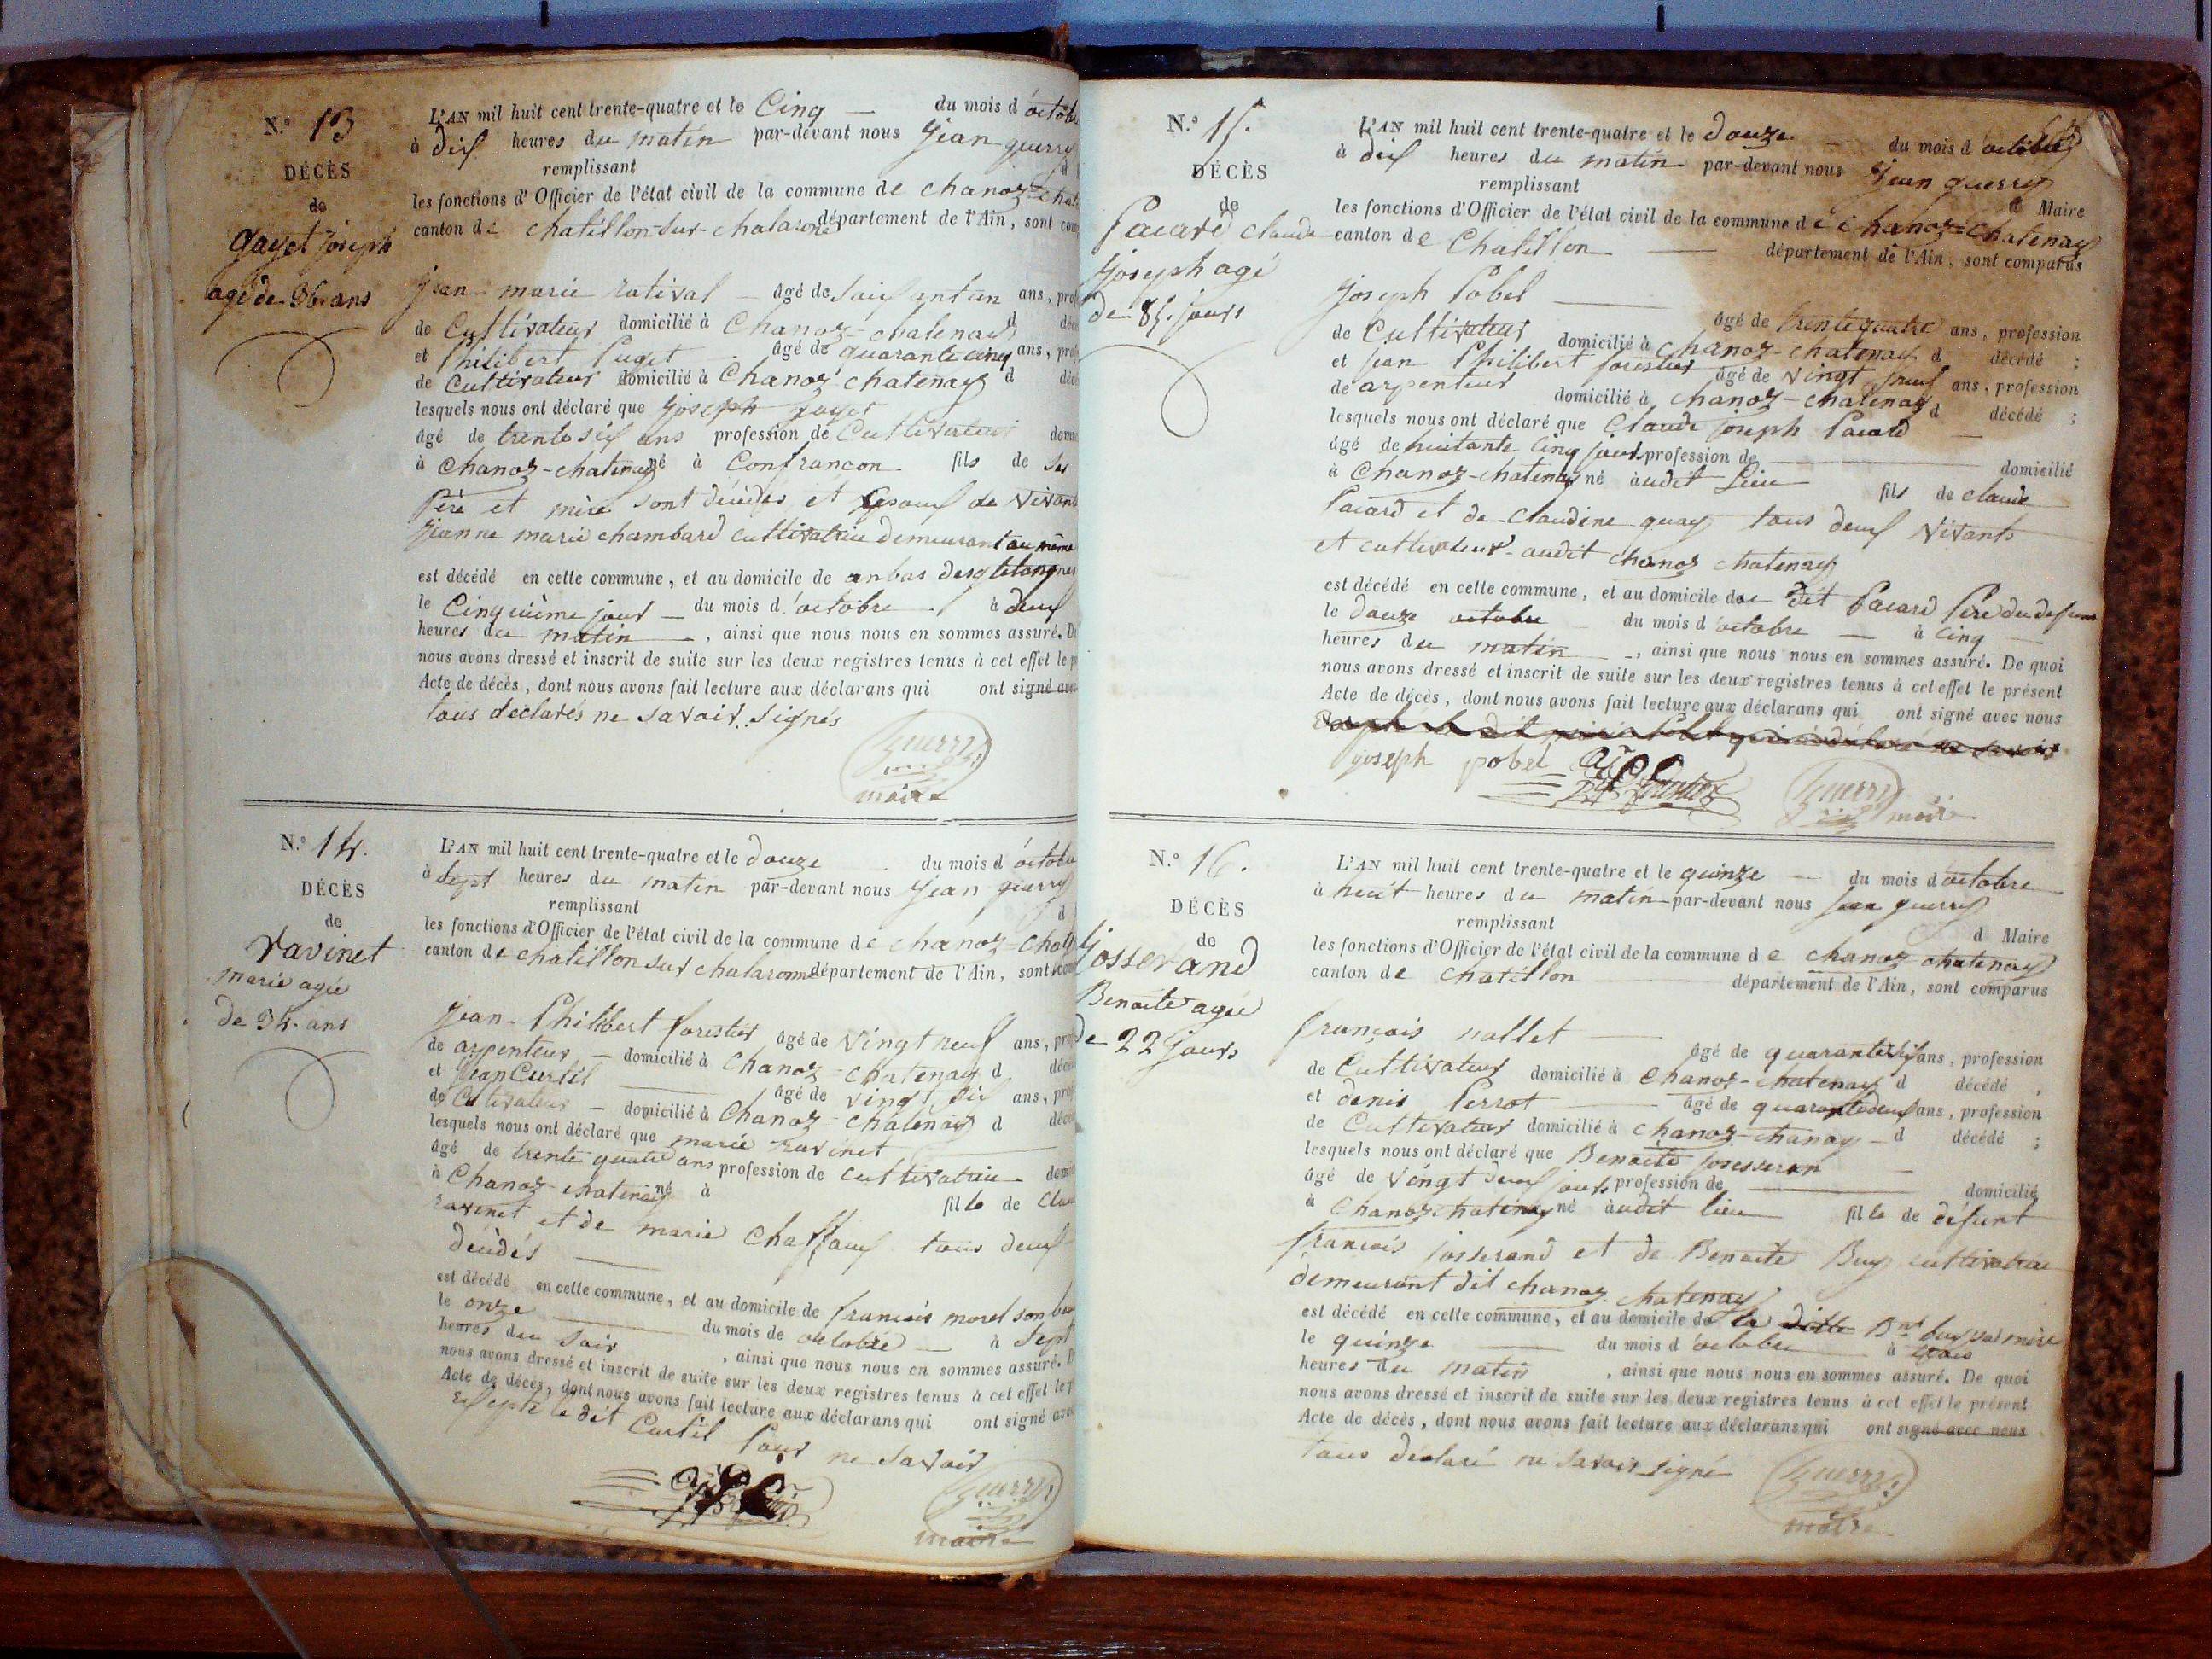 N.º 13
DÉCÈS
de
gayet joseph
agé de 36 ans
L'AN mil huit cent trente-quatre et le Cinq — du mois d'octob
à dix heures du matin par-devant nous Jean guerry
remplissant d
les fonctions d'Officier de l'état civil de la commune de chanoz-chat
canton de chatillon-sur-chalaronne département de l'Ain, sont com
jean marie rativat — âgé de soixantun ans, prof
de Cultivateur domicilié à Chanoz-chatenay d décé
et Philibert Puget âgé de quarante cinq ans, prof
de Cultivateur domicilié à Chanoz chatenay d décé
lesquels nous ont déclaré que joseph gayet
âgé de trente six ans profession de Cultivateur domi
à Chanoz-chatenay né à Confrancon fils de ses
Père et mère sont décédés, et Epoux de vivant
jeanne marie chambard cultivatrice demeurant au même
est décédé en cette commune, et au domicile de
le Cinquième jour — du mois d'octobre à deux
heures du matin —, ainsi que nous nous en sommes assuré. De
nous avons dressé et inscrit de suite sur les deux registres tenus à cet effet le p
Acte de décès, dont nous avons fait lecture aux déclarans qui ont signé avec
tous declarés ne savoir signés
Guerry
maire
N.º 14.
DÉCÈS
de
ravinet
marie agée
de 34 ans
L'AN mil huit cent trente-quatre et le douze du mois d'octobre
à sept heures du matin par-devant nous Jean guerry
remplissant d
les fonctions d'Officier de l'état civil de la commune de chanoz-chat
canton de chatillon sur chalaronne département de l'Ain, sont com
jean-Philibert forestier âgé de vingt neuf ans, prof
de arpenteur — domicilié à Chanoz-chatenay d décé
et Jean Curtil — âgé de vingt six ans, prof
de Cultivateur — domicilié à Chanoz-chatenay d décé
lesquels nous ont déclaré que marie ravinet
âgé de trente quatre ans profession de cultivatrice domi
à Chanoz chatenay né à fille de Clau
ravinet et de marie Chaffaux tous deux
décédés —
est décédé en cette commune, et au domicile de francois morel son beau
le onze — du mois de octobre — à sept
heures du soir, ainsi que nous nous en sommes assuré. D
nous avons dressé et inscrit de suite sur les deux registres tenus à cet effet le p
Acte de décès, dont nous avons fait lecture aux déclarans qui ont signé avec
Excepté le dit Curtil Pour ne savoir
Guerry
maire
N.º 15.
DÉCÈS
de
Pacard claude
joseph agé
de 85 jours
L'AN mil huit cent trente-quatre et le douze — du mois d'octobre
à dix heures du matin par-devant nous Jean guerry
remplissant d Maire
les fonctions d'Officier de l'état civil de la commune de chanoz-chatenay
canton de Chatillon — département de l'Ain, sont comparus
joseph Pobel — âgé de trente quatre ans, profession
de Cultivateur domicilié à chanoz-chatenay d décédé ;
et jean Philibert forestier âgé de vingt neuf ans, profession
de arpenteur domicilié à chanoz-chatenay d décédé ;
lesquels nous ont déclaré que Claude joseph Pacard —
âgé de huitante cinq jours profession de — domicilié
à Chanoz-chatenay né audit lieu fils de claude
Pacard et de claudine quay tous deux vivants
et cultivateurs audit chanoz chatenay
est décédé en cette commune, et au domicile de dit Pacard Père du defunt
le douze octobre du mois d'octobre — à cinq
heures du matin —, ainsi que nous nous en sommes assuré. De quoi
nous avons dressé et inscrit de suite sur les deux registres tenus à cet effet le présent
Acte de décès, dont nous avons fait lecture aux déclarans qui ont signé avec nous
joseph pobel Guerry maire
N.º 16.
DÉCÈS
de
Josserand
Benoite agée
de 22 jours
L'AN mil huit cent trente-quatre et le quinze — du mois d'octobre
à huit heures du matin par-devant nous Jean guerry
remplissant d Maire
les fonctions d'Officier de l'état civil de la commune de chanoz chatenay
canton de chatillon — département de l'Ain, sont comparus
françois nallet — âgé de quarante six ans, profession
de Cultivateur domicilié à Chanoz-chatenay d décédé
et denis Perrot — âgé de quarante deux ans, profession
de Cultivateur domicilié à chanoz-chanay — d décédé ;
lesquels nous ont déclaré que Benoite josseran —
âgé de vingt deux jours profession de — domicilié
à Chanoz chatenay né audit lieu fille de défunt
francois josserand et de Benoite Buy cultivatrice
demeurant dit chanoz chatenay
est décédé en cette commune, et au domicile de la ditte Bnte buy sa mère
le quinze — du mois d'octobre à trois
heures du matin, ainsi que nous nous en sommes assuré. De quoi
nous avons dressé et inscrit de suite sur les deux registres tenus à cet effet le présent
Acte de décès, dont nous avons fait lecture aux déclarans qui ont signé avec nous
tous déclaré ne savoir signé
Guerry
maire